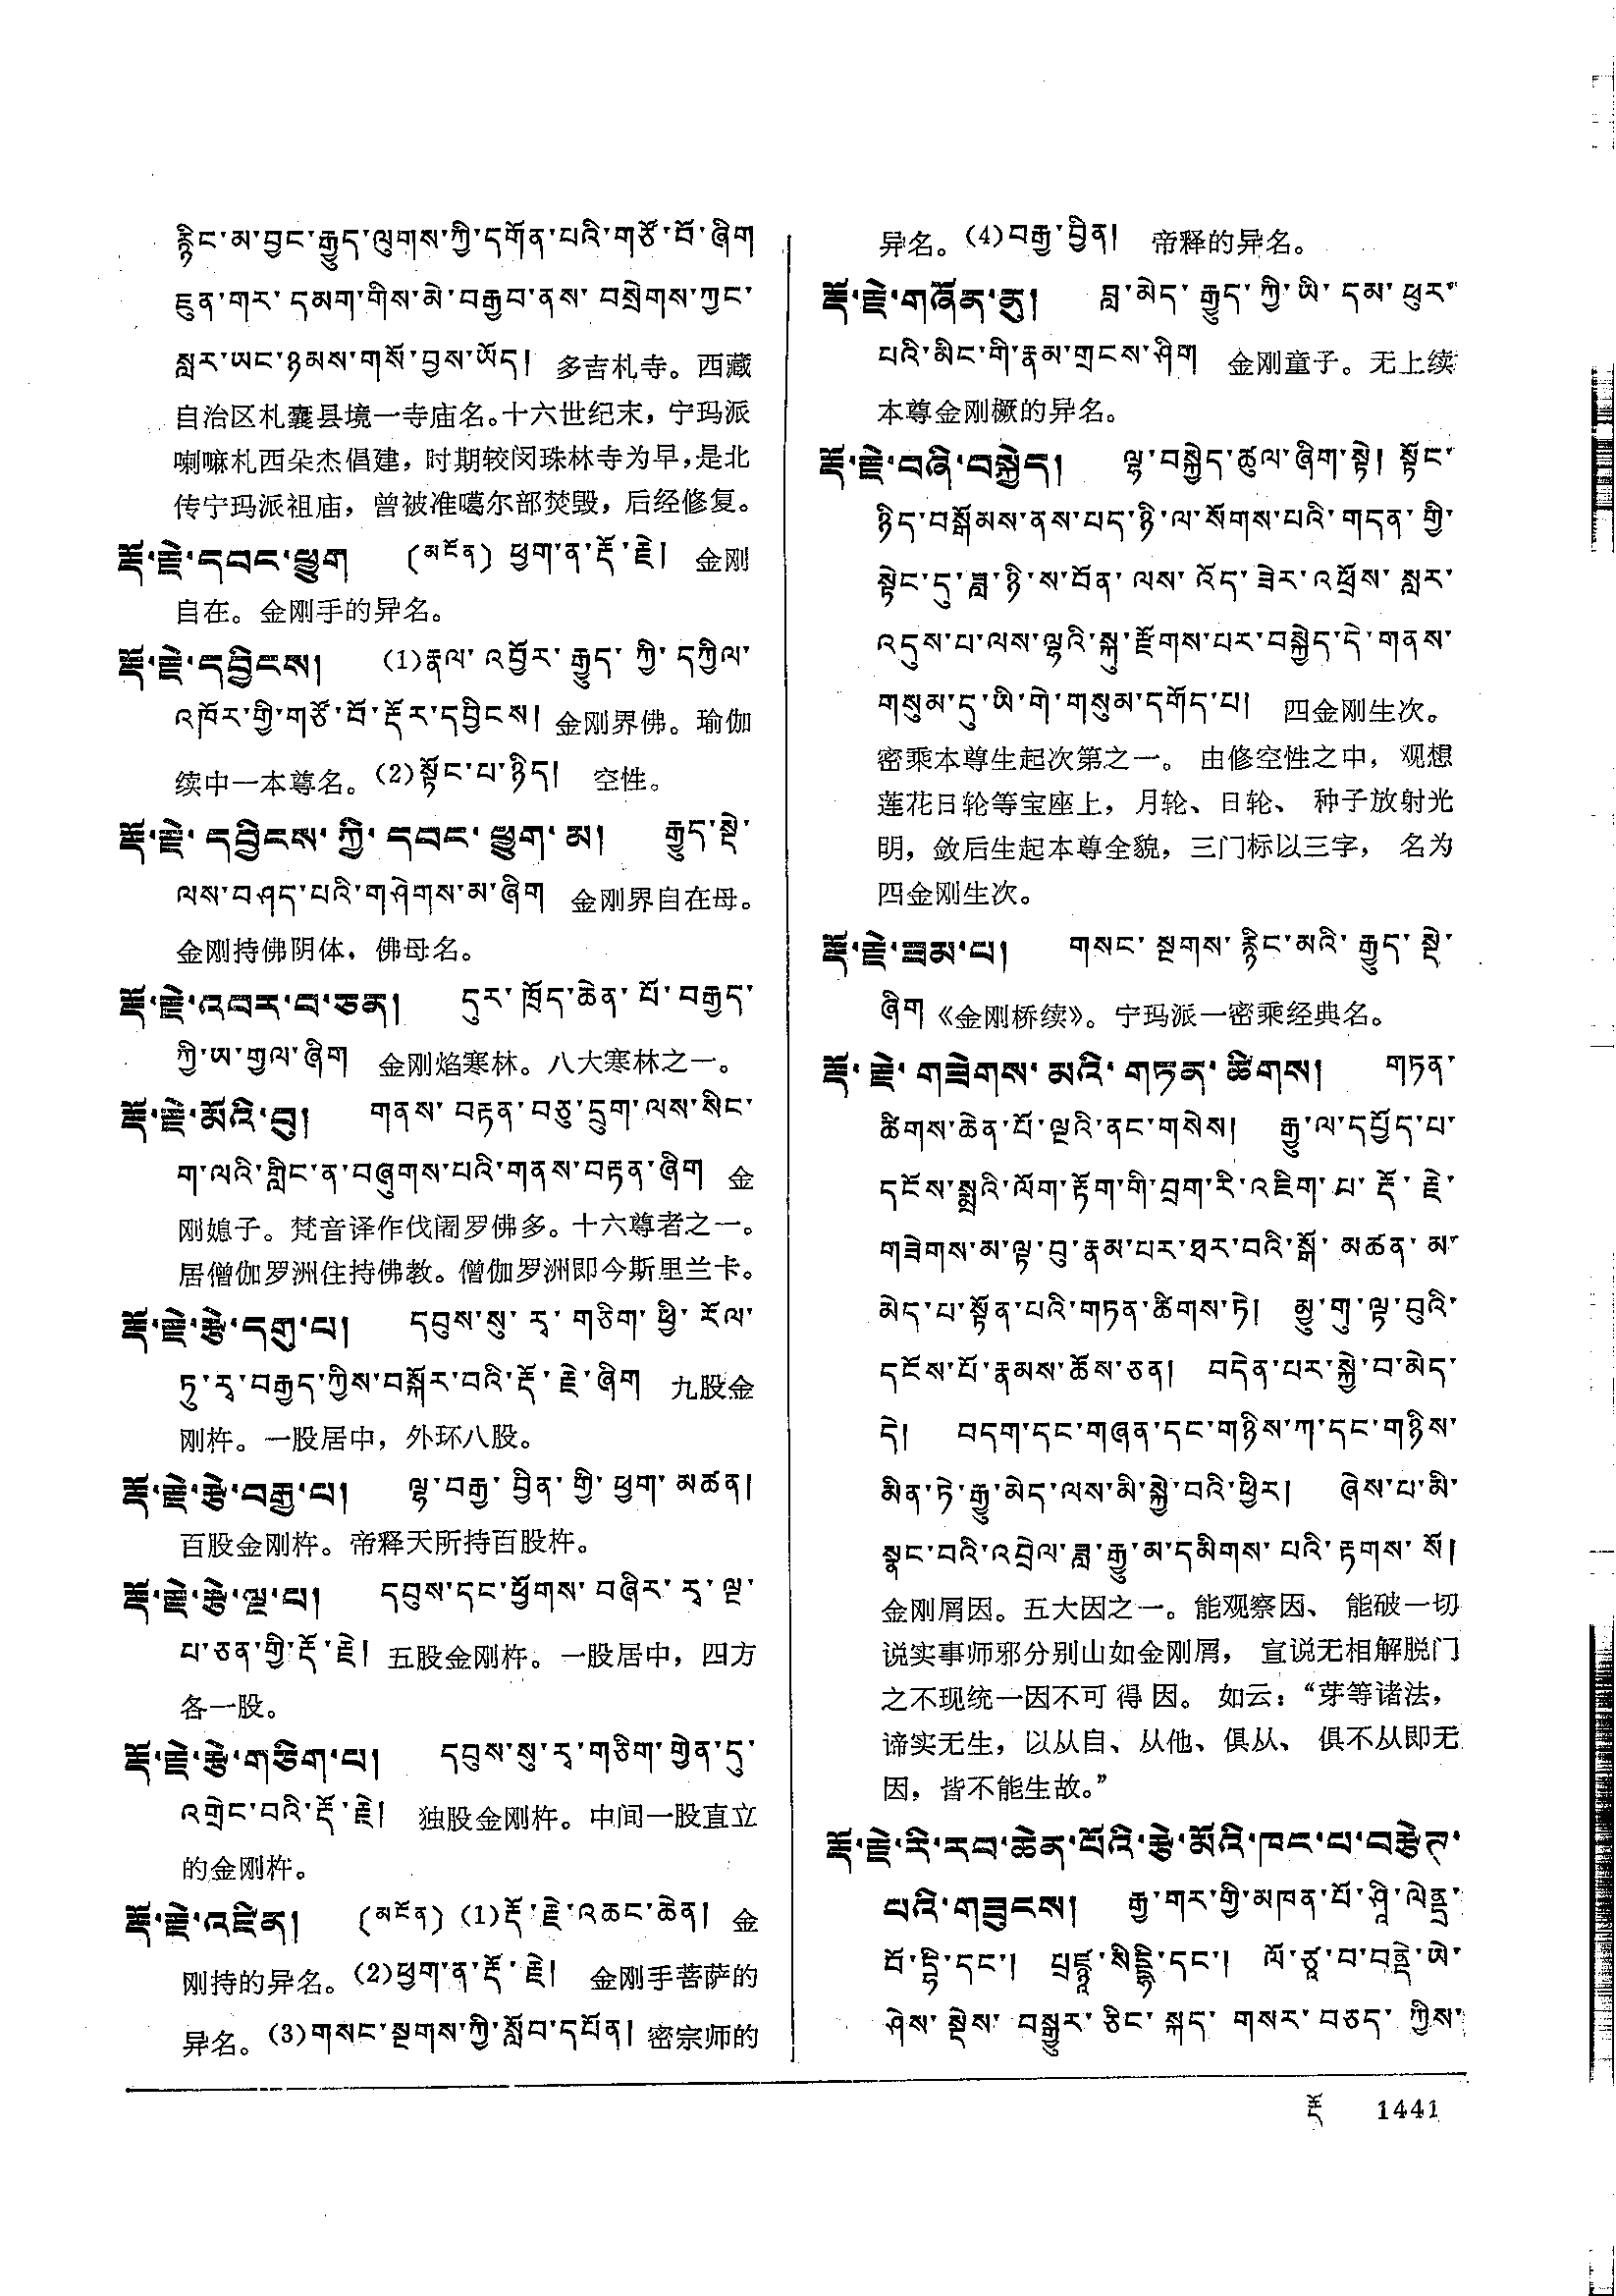 རྙིང་མ་བྱང་རྒྱུད་ལུགས་ཀྱི་དགོན་པའི་གཙོ་བོ་ཞིག
ཇུན་གར་དམག་གིས་མེ་བརྒྱབ་ནས་བསྲེགས་ཀྱང་
སླར་ཡང་ཉམས་གསོ་བྱས་ཡོད། 多吉札寺。西藏
自治区札囊县境一寺庙名。十六世纪末，宁玛派
喇嘛札西朵杰倡建，时期较闵珠林寺为早，是北
传宁玛派祖庙，曾被准噶尔部焚毁，后经修复。
རྡོ་རྗེ་དབང་ཕྱུག (མངོན) ཕྱག་ན་རྡོ་རྗེ། 金刚
自在。金刚手的异名。
རྡོ་རྗེ་དབྱིངས། (1)རྣལ་འབྱོར་རྒྱུད་ཀྱི་དཀྱིལ་
འཁོར་གྱི་གཙོ་བོ་རྡོར་དབྱིངས། 金刚界佛。瑜伽
续中一本尊名。(2)སྟོང་པ་ཉིད། 空性。
རྡོ་རྗེ་དབྱིངས་ཀྱི་དབང་ཕྱུག་མ། རྒྱུད་སྡེ་
ལས་བཤད་པའི་གཤེགས་མ་ཞིག 金刚界自在母。
金刚持佛阴体，佛母名。
རྡོ་རྗེ་འབར་བ་ཅན། དུར་ཁྲོད་ཆེན་པོ་བརྒྱད་
ཀྱི་ཨ་གྱལ་ཞིག 金刚焰寒林。八大寒林之一。
རྡོ་རྗེ་མོའི་བུ། གནས་བརྟན་བཅུ་དྲུག་ལས་སིང་
ག་ལའི་གླིང་ན་བཞུགས་པའི་གནས་བརྟན་ཞིག 金
刚媳子。梵音译作伐阇罗佛多。十六尊者之一。
居僧伽罗洲住持佛教。僧伽罗洲即今斯里兰卡。
རྡོ་རྗེ་རྩེ་དགུ་པ། དབུས་སུ་རྭ་གཅིག་ཕྱི་རོལ་
ཏུ་རྭ་བརྒྱད་ཀྱིས་བསྐོར་བའི་རྡོ་རྗེ་ཞིག 九股金
刚杵。一股居中，外环八股。
རྡོ་རྗེ་རྩེ་བརྒྱ་པ། ལྷ་བརྒྱ་བྱིན་གྱི་ཕྱག་མཚན།
百股金刚杵。帝释天所持百股杵。
རྡོ་རྗེ་རྩེ་ལྔ་པ། དབུས་དང་ཕྱོགས་བཞིར་རྭ་ལྔ་
པ་ཅན་གྱི་རྡོ་རྗེ། 五股金刚杵。一股居中，四方
各一股。
རྡོ་རྗེ་རྩེ་གཅིག་པ། དབུས་སུ་རྭ་གཅིག་གྱེན་དུ་
འགྲེང་བའི་རྡོ་རྗེ། 独股金刚杵。中间一股直立
的金刚杵。
རྡོ་རྗེ་འཛིན། (མངོན) (1)རྡོ་རྗེ་འཆང་ཆེན། 金
刚持的异名。(2)ཕྱག་ན་རྡོ་རྗེ། 金刚手菩萨的
异名。(3)གསང་སྔགས་ཀྱི་སློབ་དཔོན། 密宗师的
异名。(4)བརྒྱ་བྱིན། 帝释的异名。
རྡོ་རྗེ་གཞོན་ནུ། བླ་མེད་རྒྱུད་ཀྱི་ཡི་དམ་ཕུར་
པའི་མིང་གི་རྣམ་གྲངས་ཤིག 金刚童子。无上续
本尊金刚橛的异名。
རྡོ་རྗེ་བཞི་བསྐྱེད། ལྷ་བསྐྱེད་ཚུལ་ཞིག་སྟེ། སྟོང་
ཉིད་བསྒོམས་ནས་པད་ཉི་ལ་སོགས་པའི་གདན་གྱི་
སྟེང་དུ་ཟླ་ཉི་ས་བོན་ལས་འོད་ཟེར་འཕྲོས་སླར་
འདུས་པ་ལས་ལྷའི་སྐུ་རྫོགས་པར་བསྐྱེད་དེ་གནས་
གསུམ་དུ་ཡི་གེ་གསུམ་དགོད་པ། 四金刚生次。
密乘本尊生起次第之一。由修空性之中，观想
莲花日轮等宝座上，月轮、日轮、种子放射光
明，敛后生起本尊全貌，三门标以三字，名为
四金刚生次。
རྡོ་རྗེ་ཟམ་པ། གསང་སྔགས་རྙིང་མའི་རྒྱུད་སྡེ་
ཞིག 《金刚桥续》。宁玛派一密乘经典名。
རྡོ་རྗེ་གཟེགས་མའི་གཏན་ཚིགས། གཏན་
ཚིགས་ཆེན་པོ་ལྔའི་ནང་གསེས། རྒྱུ་ལ་དཔྱོད་པ་
དངོས་སྨྲའི་ལོག་རྟོག་གི་བྲག་རི་འཇིག་པ་རྡོ་རྗེ་
གཟེགས་མ་ལྟ་བུ་རྣམ་པར་ཐར་བའི་སྒོ་མཚན་མ་
མེད་པ་སྟོན་པའི་གཏན་ཚིགས་ཏེ། མྱུ་གུ་ལྟ་བུའི་
དངོས་པོ་རྣམས་ཆོས་ཅན། བདེན་པར་སྐྱེ་བ་མེད་
དེ། བདག་དང་གཞན་དང་གཉིས་ཀ་དང་གཉིས་
མིན་ཏེ་རྒྱུ་མེད་ལས་མི་སྐྱེ་བའི་ཕྱིར། ཞེས་པ་མི་
སྣང་བའི་འབྲེལ་ཟླ་རྒྱུ་མ་དམིགས་པའི་རྟགས་སོ།
金刚屑因。五大因之一。能观察因、能破一切
说实事师邪分别山如金刚屑，宣说无相解脱门
之不现统一因不可得因。如云：“芽等诸法，
谛实无生，以从自、从他、俱从、俱不从即无
因，皆不能生故。”
རྡོ་རྗེ་རི་རབ་ཆེན་པོའི་རྩེ་མོའི་ཁང་པ་བརྩེགས་
པའི་གཟུངས། རྒྱ་གར་གྱི་མཁན་པོ་ཤཱི་ལེནྡྲ་
བོ་དྷི་དང་། པྲཛྙཱ་སིདྡྷི་དང་། ལོ་ཙཱ་བ་བནྡེ་ཡེ་
ཤེས་སྡེས་བསྒྱུར་ཅིང་སྐད་གསར་བཅད་ཀྱིས་
རྡོ 1441